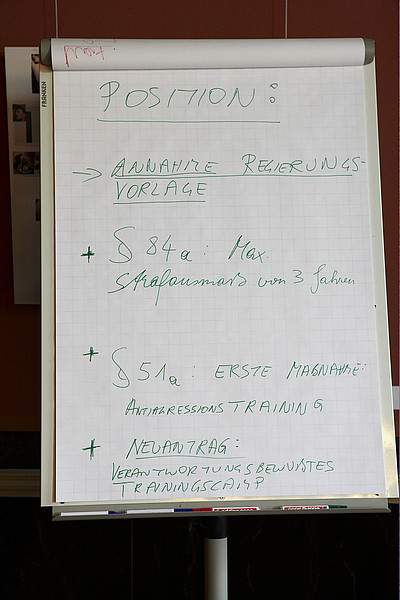 FRANKEN
POSITION:
→ ANNAHME REGIERUNGS-
VORLAGE
+ § 84a: Max.
Strafausmaß von 3 Jahren
+ § 51a: ERSTE MAßNAHME:
ANTIAGRESSIONSTRAINING
+ NEUANTRAG:
VERANTWORTUNGSBEWUßTES
TRAININGSCAMP